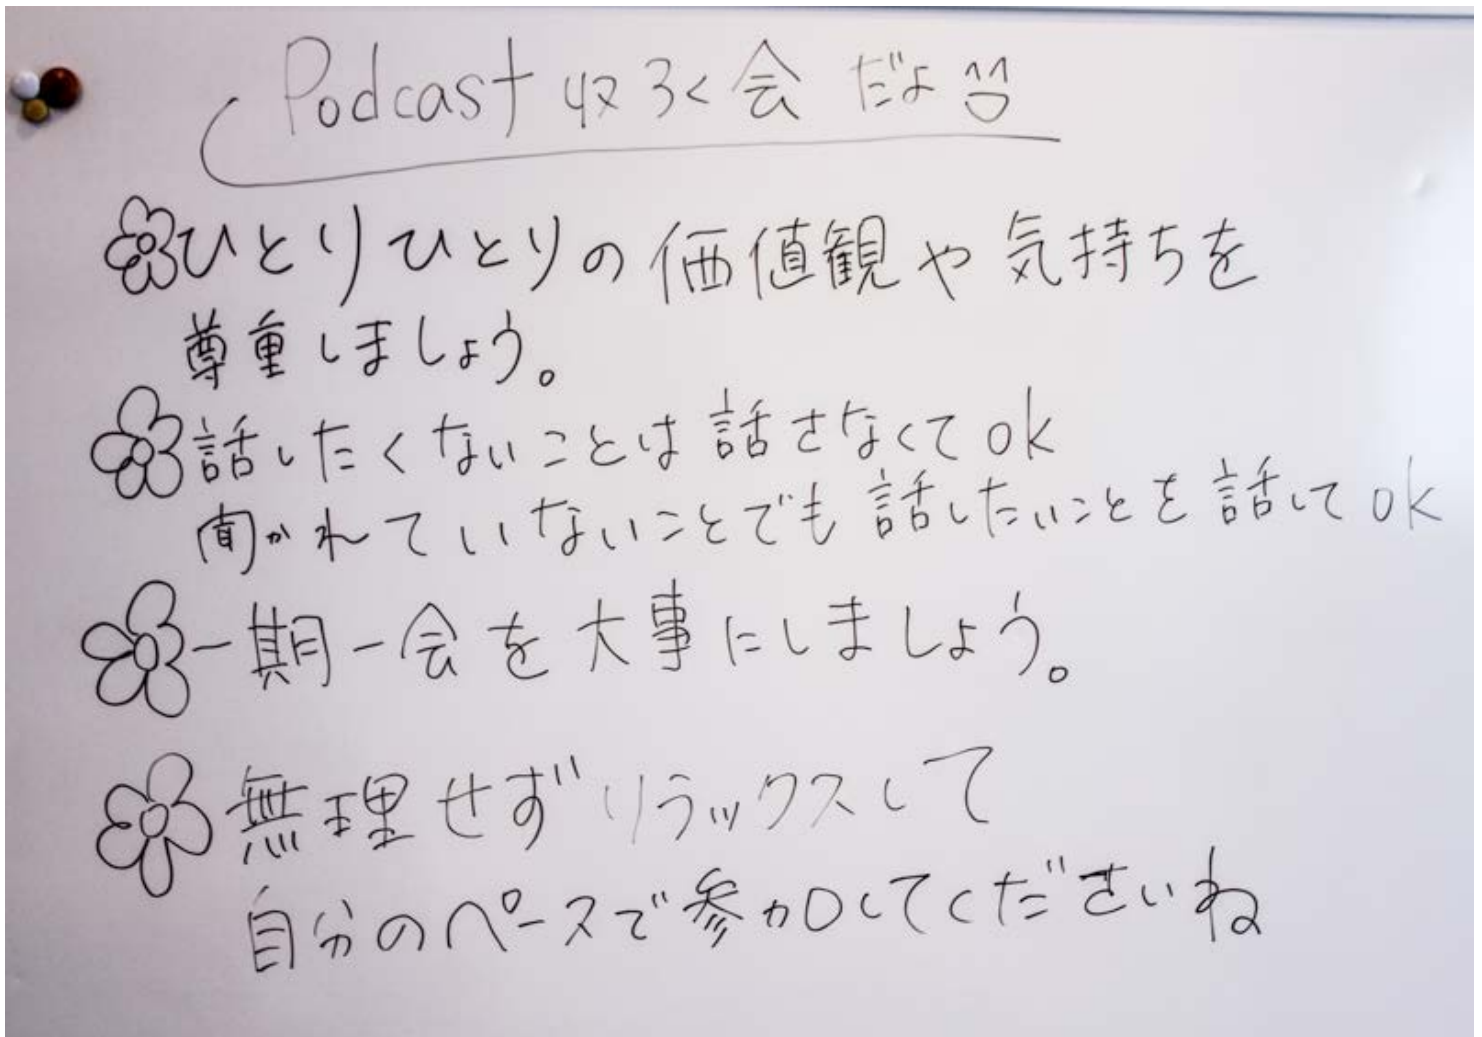 Podcast 収ろく会 だよ
ひとりひとりの価値観や気持ちを
尊重しましょう。
話したくないことは話さなくてok
聞かれていないことでも話したいことを話してok
一期一会を大事にしましょう。
無理せずリラックスして
自分のペースで参加してくださいね